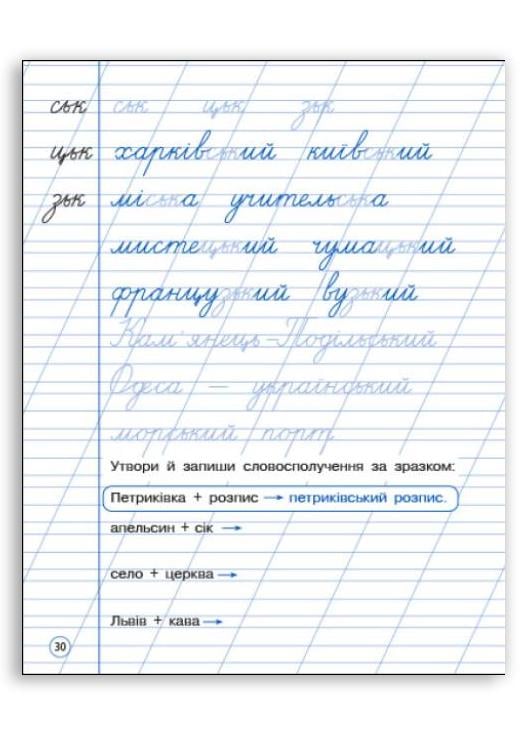 ськ ськ цьк зьк
цьк харківський київський
зьк міська учительська
мистецький чумацький
французький вузький
Кам'янець-Подільський
Одеса — український
морський порт
Утвори й запиши словосполучення за зразком:
Петриківка + розпис → петриківський розпис.
апельсин + сік →
село + церква →
Львів + кава →
30